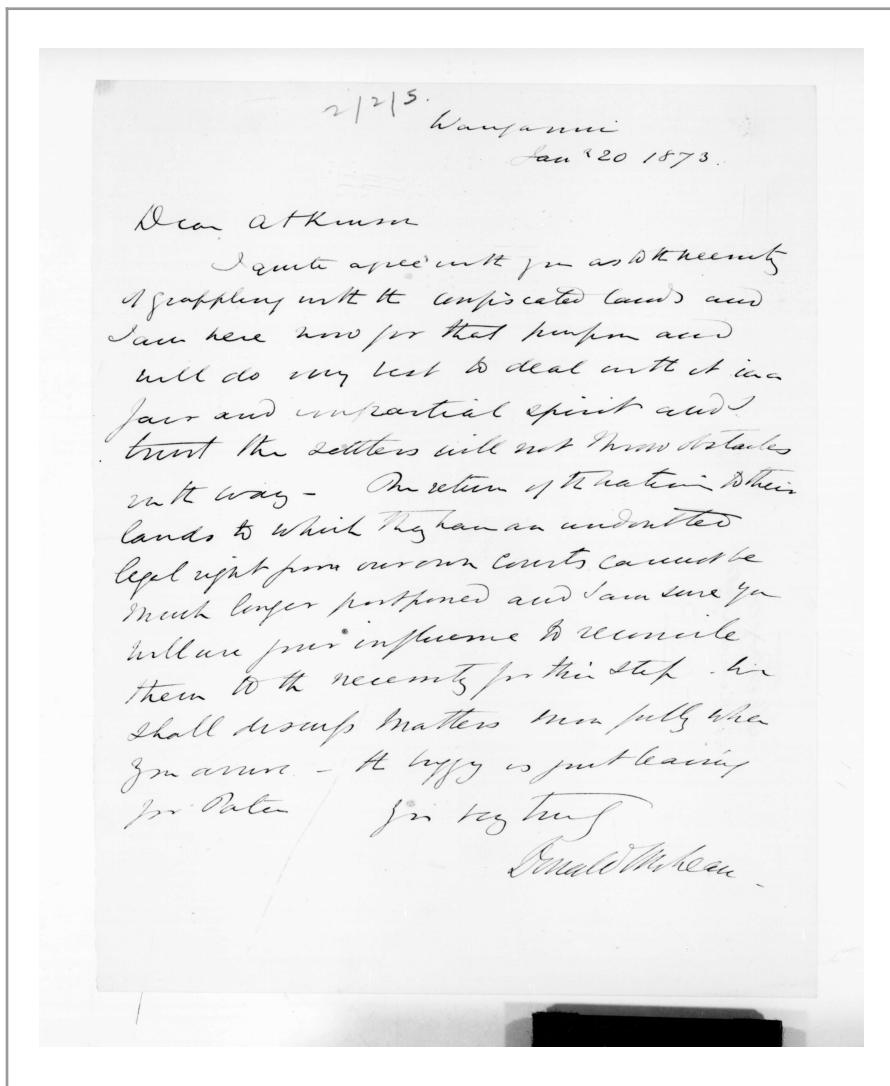 2/2/5.
Wanganui
Jany 20 1873.
Dear Atkinson
I quite agree with you as to the necessity
of grappling with the confiscated lands and
I am here now for that purpose and
will do my best to deal with it in a
fair and impartial spirit and I
trust the settlers will not throw obstacles
in the way - The return of the natives to their
lands to which they have an undoubted
legal right from our own Courts cannot be
much longer postponed and I am sure you
will use your influence to reconcile
them to the necessity for this step. We
shall discuss matters more fully when
you arrive - the buggy is just leaving
for Patea Yours very truly
Donald McLean